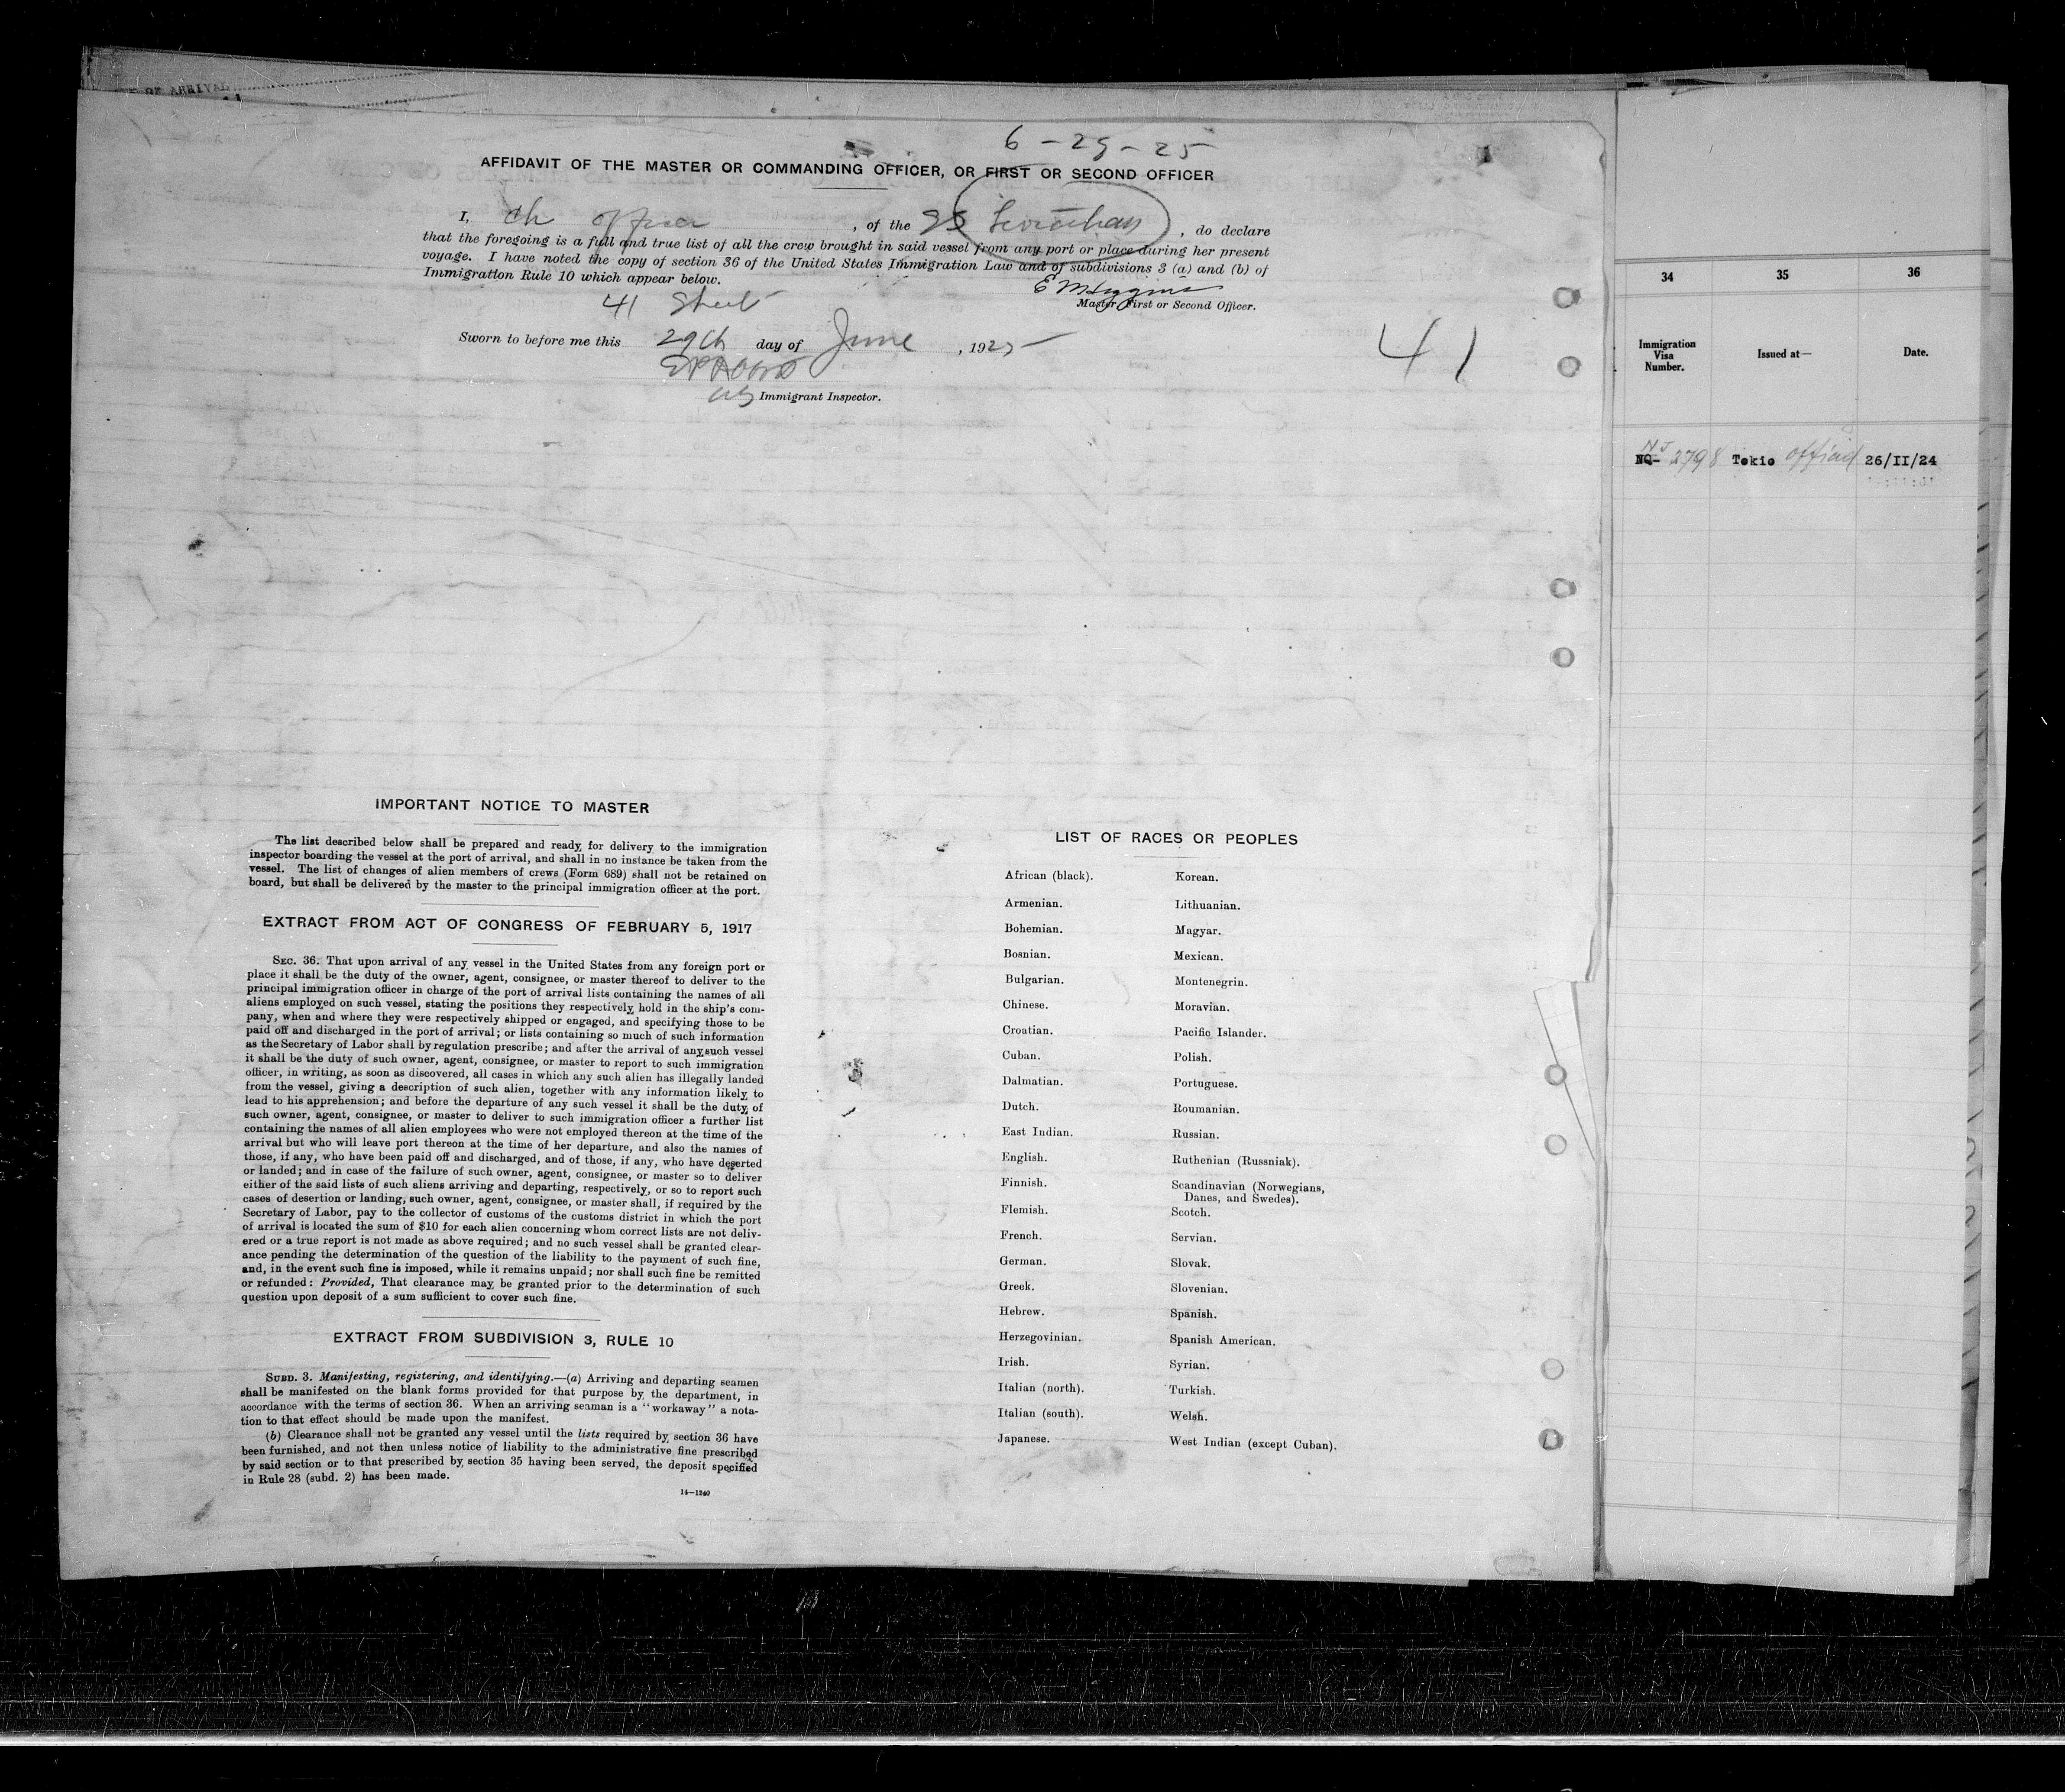 OF ARRIVAL
6-29-25
AFFIDAVIT OF THE MASTER OR COMMANDING OFFICER, OR FIRST OR SECOND OFFICER
I, Ch officer, of the SS Leviathan, do declare
that the foregoing is a full and true list of all the crew brought in said vessel from any port or place during her present
voyage. I have noted the copy of section 36 of the United States Immigration Law and of subdivisions 3 (a) and (b) of
Immigration Rule 10 which appear below.
E Higgins
41 Sheets
Master, First or Second Officer.
Sworn to before me this 29th day of June, 1925
41
Immigrant Inspector.
IMPORTANT NOTICE TO MASTER
The list described below shall be prepared and ready for delivery to the immigration
inspector boarding the vessel at the port of arrival, and shall in no instance be taken from the
vessel. The list of changes of alien members of crews (Form 689) shall not be retained on
board, but shall be delivered by the master to the principal immigration officer at the port.
EXTRACT FROM ACT OF CONGRESS OF FEBRUARY 5, 1917
SEC. 36. That upon arrival of any vessel in the United States from any foreign port or
place it shall be the duty of the owner, agent, consignee, or master thereof to deliver to the
principal immigration officer in charge of the port of arrival lists containing the names of all
aliens employed on such vessel, stating the positions they respectively hold in the ship's com-
pany, when and where they were respectively shipped or engaged, and specifying those to be
paid off and discharged in the port of arrival; or lists containing so much of such information
as the Secretary of Labor shall by regulation prescribe; and after the arrival of any such vessel
it shall be the duty of such owner, agent, consignee, or master to report to such immigration
officer, in writing, as soon as discovered, all cases in which any such alien has illegally landed
from the vessel, giving a description of such alien, together with any information likely to
lead to his apprehension; and before the departure of any such vessel it shall be the duty of
such owner, agent, consignee, or master to deliver to such immigration officer a further list
containing the names of all alien employees who were not employed thereon at the time of the
arrival but who will leave port thereon at the time of her departure, and also the names of
those, if any, who have been paid off and discharged, and of those, if any, who have deserted
or landed; and in case of the failure of such owner, agent, consignee, or master so to deliver
either of the said lists of such aliens arriving and departing, respectively, or so to report such
cases of desertion or landing, such owner, agent, consignee, or master shall, if required by the
Secretary of Labor, pay to the collector of customs of the customs district in which the port
of arrival is located the sum of $10 for each alien concerning whom correct lists are not deliv-
ered or a true report is not made as above required; and no such vessel shall be granted clear-
ance pending the determination of the question of the liability to the payment of such fine,
and, in the event such fine is imposed, while it remains unpaid; nor shall such fine be remitted
or refunded: Provided, That clearance may be granted prior to the determination of such
question upon deposit of a sum sufficient to cover such fine.
EXTRACT FROM SUBDIVISION 3, RULE 10
SUBD. 3. Manifesting, registering, and identifying.—(a) Arriving and departing seamen
shall be manifested on the blank forms provided for that purpose by the department, in
accordance with the terms of section 36. When an arriving seaman is a "workaway" a nota-
tion to that effect should be made upon the manifest.
(b) Clearance shall not be granted any vessel until the lists required by section 36 have
been furnished, and not then unless notice of liability to the administrative fine prescribed
by said section or to that prescribed by section 35 having been served, the deposit specified
in Rule 28 (subd. 2) has been made.
14—1240
LIST OF RACES OR PEOPLES
African (black).
Armenian.
Bohemian.
Bosnian.
Bulgarian.
Chinese.
Croatian.
Cuban.
Dalmatian.
Dutch.
East Indian.
English.
Finnish.
Flemish.
French.
German.
Greek.
Hebrew.
Herzegovinian.
Irish.
Italian (north).
Italian (south).
Japanese.
Korean.
Lithuanian.
Magyar.
Mexican.
Montenegrin.
Moravian.
Pacific Islander.
Polish.
Portuguese.
Roumanian.
Russian.
Ruthenian (Russniak).
Scandinavian (Norwegians,
Danes, and Swedes).
Scotch.
Servian.
Slovak.
Slovenian.
Spanish.
Spanish American.
Syrian.
Turkish.
Welsh.
West Indian (except Cuban).
34 35 36
Immigration
Visa
Number.
Issued at—
Date.
NQ- 2798 Tokio official 26/II/24